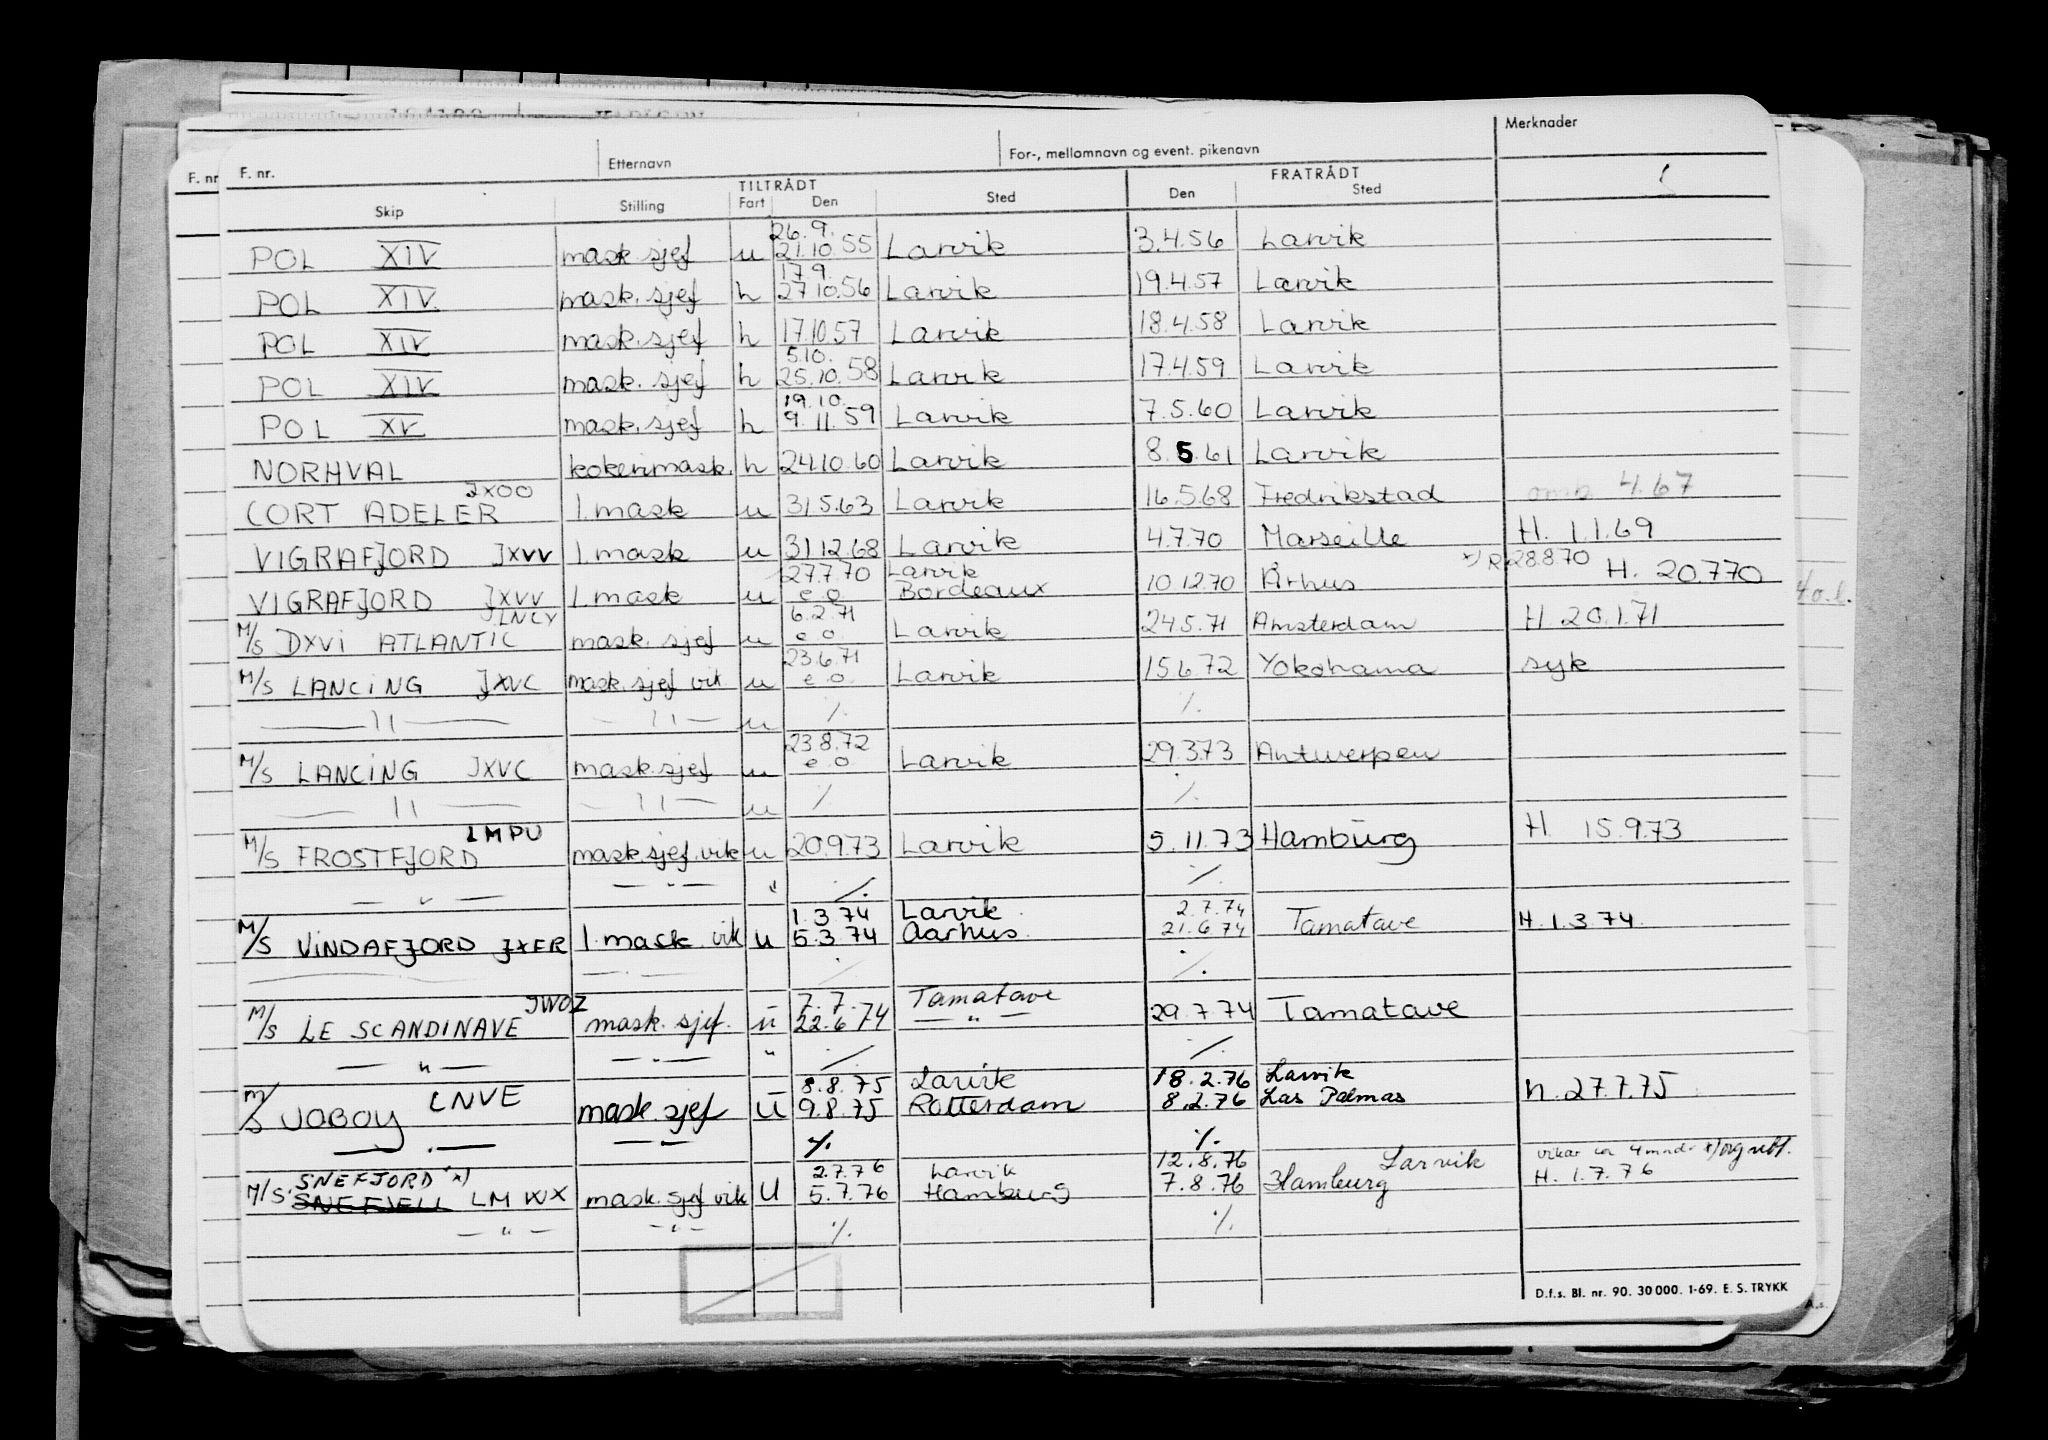 Merknader
F. nr. F. nr. Etternavn For-, mellomnavn og event. pikenavn
TILTRÅDT FRATRÅDT
Skip Stilling Fart Den Sted Den Sted
26.9.
POL XIV mask sjef u 21.10.55 Larvik 3.4.56 Larvik
17.9.
POL XIV mask. sjef h 27.10.56 Larvik 19.4.57 Larvik
POL XIV mask. sjef h 17.10.57 Larvik 18.4.58 Larvik
5.10.
POL XIV mask. sjef h 25.10.58 Larvik 17.4.59 Larvik
19.10.
POL XV mask. sjef h 9.11.59 Larvik 7.5.60 Larvik
NORHVAL kokerimask. h 24.10.60 Larvik 8.5.61 Larvik
JXOO
CORT ADELER 1. mask u 31.5.63 Larvik 16.5.68 Fredrikstad omb. 4.67
VIGRAFJORD JXVV 1. mask u 31.12.68 Larvik 4.7.70 Marseille H. 1.1.69
27.7.70 Larvik x) R 28.8.70
VIGRAFJORD JXVV 1. mask u e.o. Bordeaux 10.12.70 Århus H. 20.7.70 4 o.l.
LNCY 6.2.71
M/S DXVI ATLANTIC mask. sjef u e.o. Larvik 24.5.71 Amsterdam H 20.1.71
23.6.71
M/S LANCING JXVC mask. sjef vik u e.o. Larvik 15.6.72 Yokohama syk
— 11 — — 11 — u ·/. ·/.
23.8.72
M/S LANCING JXVC mask. sjef u e.o. Larvik 29.3.73 Antwerpen
— 11 — — 11 — u ·/. ·/.
LMPU
M/S FROSTFJORD mask. sjef. vik u 20.9.73 Larvik 5.11.73 Hamburg H. 15.9.73
— " — — " — " ·/. ·/.
1.3.74 Larvik 2.7.74
M/S VINDAFJORD JXFR 1. mask vik u 5.3.74 Aarhus. 21.6.74 Tamatave H. 1.3.74.
— — ·/. ·/.
JWOZ 7.7. Tamatave
M/S LE SCANDINAVE mask. sjef. u 22.6.74 — " — 29.7.74 Tamatave
— " — — " — " ·/. ·/.
8.8.75 Larvik 18.2.76 Larvik
M/S JOBOY LNVE mask sjef u 9.8.75 Rotterdam 8.2.76 Las Palmas h. 27.7.75
— . — — — ·/. ·/.
SNEFJORD x) 2.7.76 Larvik 12.8.76 Larvik vikar ca 4 mndr x)
M/S SNEFJELL LMWX mask. sjef vik U 5.7.76 Hamburg 7.8.76 Hamburg H. 1.7.76
— " — — " — ·/. ·/.
D.f.s. Bl. nr. 90. 30 000. 1-69. E. S. TRYKK